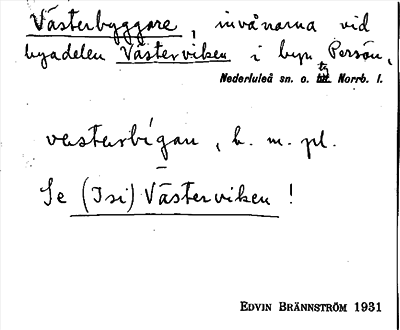 Västerbyggare, invånarna vid
byadelen Västerviken i byn Persön,
Nederluleå sn. o. tg Norrb. l.
vestarbígan, b. m. pl.
Se (Isi) Västerviken!
EDVIN BRÄNNSTRÖM 1931